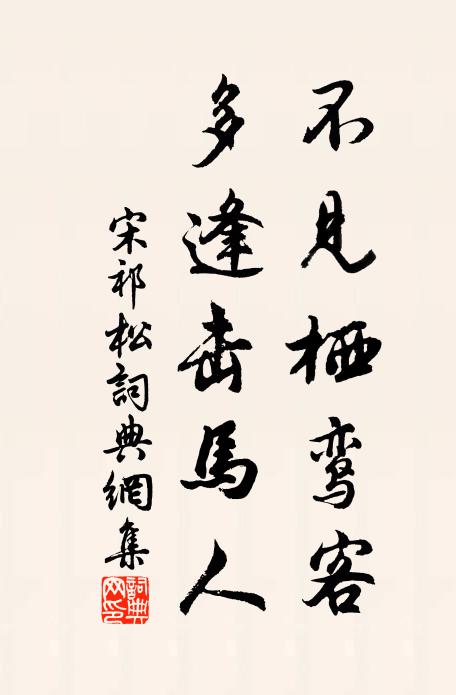 不见栖鸾客
多逢击馬人
宋祁松詞典網集
詞典網印